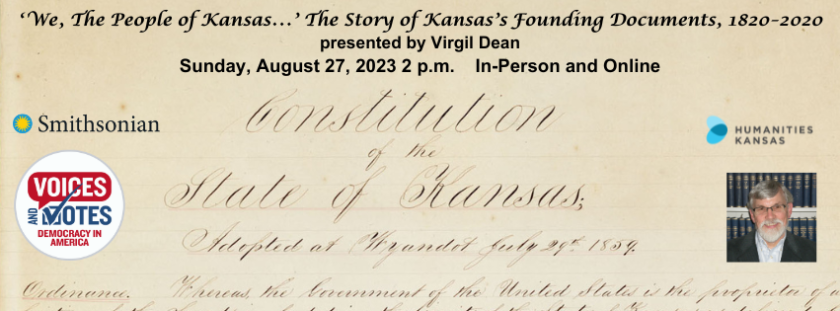 ‘We, The People of Kansas...’ The Story of Kansas’s Founding Documents, 1820-2020
presented by Virgil Dean
Sunday, August 27, 2023 2 p.m. In-Person and Online
Constitution
Smithsonian
HUMANITIES
KANSAS
of the
VOICES
AND VOTES
DEMOCRACY IN
AMERICA
State of Kansas;
Adopted at Wyandot July 29th 1859.
Ordinance. Whereas, the Government of the United States is the proprietor of